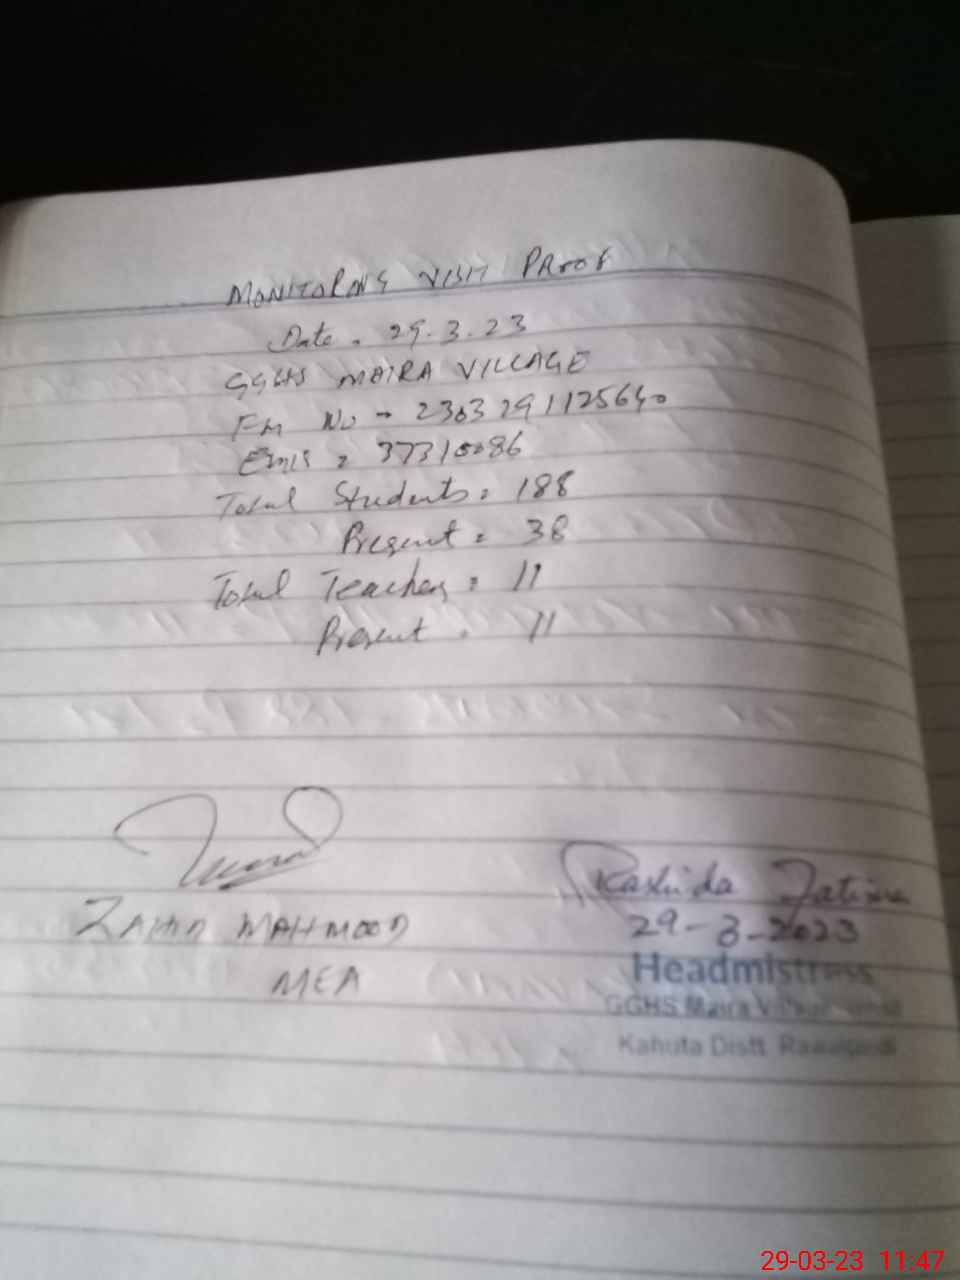 MONITORING VISIT PROOF
Date = 29.3.23
GGHS MAIRA VILLAGE
FM No - 2303291125640
EMIS = 37310086
Total Students = 188
Present = 38
Total Teachers = 11
Present = 11
ZAHID MAHMOOD
MEA
Rashida Fatima
29-3-2023
Headmistress
GGHS Maira
Kahuta Distt Rawalpindi
29-03-23 11:47